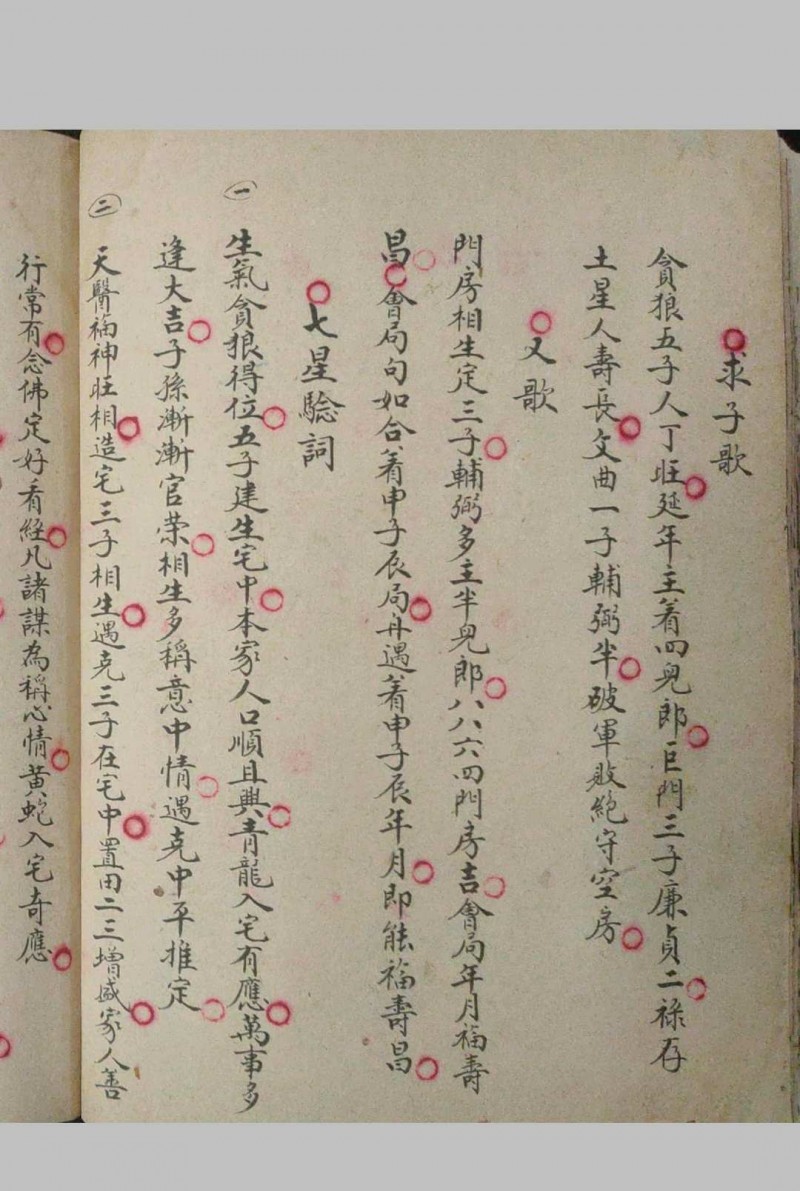 求子歌
貪狼五子人丁旺延年主着四兒郎巨門三子廉貞二祿存
土星人壽長文曲一子輔弼半破軍敗絕守空房
又歌
門房相生定三子輔弼多主半兒郎八八六四門房吉會局年月福壽
昌會局句如合着申子辰局再遇着申子辰年月即能福壽昌
七星驗詞
㊀ 生氣貪狼得位五子建生宅中本家人口順且興青龍入宅有應萬事多
逢大吉子孫漸漸官荣相生多稱意中情遇克中平推定
㊁ 天醫福神旺相造宅三子相生遇克三子在宅中置田二三增盛家人善
行常有念佛定好看經凡諸謀為稱心情黄蛇入宅奇應